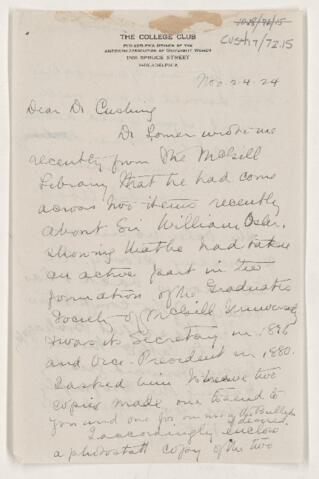 THE COLLEGE CLUB
PHILADELPHIA BRANCH OF THE
AMERICAN ASSOCIATION OF UNIVERSITY WOMEN
1300 SPRUCE STREET
PHILADELPHIA
CUS417/72.15
Nov. 24. 24
Dear Dr Cushing
Dr Lomer wrote me
recently from the McGill
Library that he had come
across two items recently
about Sir William Osler,
showing that he had taken
an active part in the
formation of the Graduates
Society of McGill University
& was its Secretary in 1876
and Vice-President in 1880.
I asked him to have two
copies made one to send to
you and one for our
I accordingly enclose
a photostat copy of the two